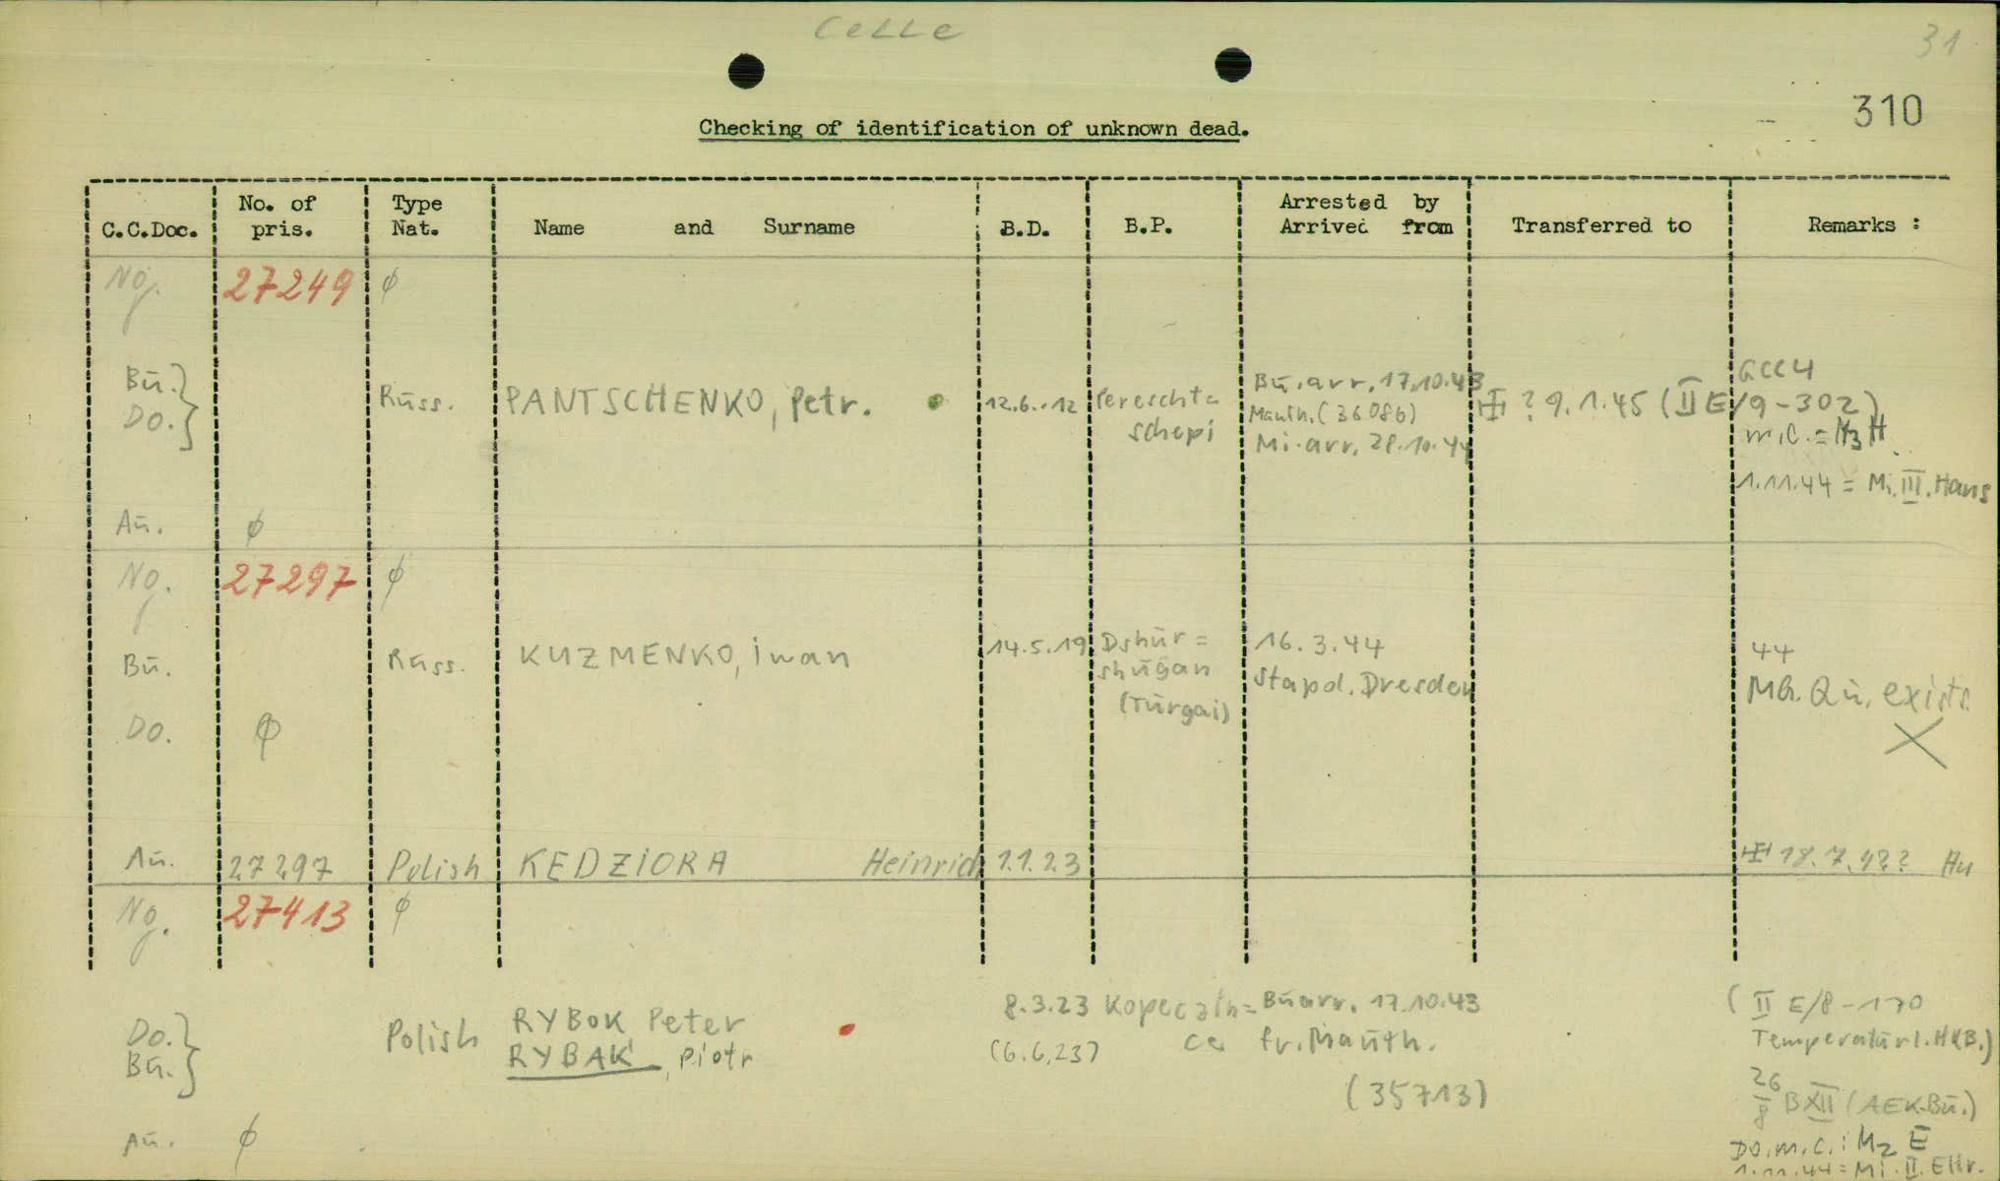 Celle
31
310
Checking of identification of unknown dead.
C.C.Doc. No. of pris. Type Nat. Name and Surname B.D. B.P. Arrested by Arrived from Transferred to Remarks :
No. 27249 ϕ
Bū. } Do. } Russ. PANTSCHENKO, Petr. 12.6.12 Pereschta
schepi
Bū. arr. 17.10.43
Mauth. (36086)
Mi. arr. 28.10.44
? 9.1.45 (II E/9-302)
GCC4
m.C. = N3 H
1.11.44 = Mi. III. Hans
Aū. ϕ
No. 27297 ϕ
Bū. Russ. KUZMENKO, iwan 14.5.19 Dshūr =
shūgan
(Tūrgai)
16.3.44
Stapol. Dresden
44
Mb. Qū. exists.
Do. ϕ
Aū. 27297 Polish KEDZIORA Heinrich 1.1.23 18.7.42? Au
No. 27413 ϕ
Do. } Bū. } Polish RYBOK Peter
RYBAK, Piotr
8.3.23
(6.6.23)
Kopeczin =
ce
Bū arr. 17.10.43
fr. Maūth.
(35713)
( II E/8-170
Temperatūrl. HKB.)
26/8 B XII (AEK-Bū.)
Do. m. C.: M2 E
1.11.44 = Mi. II. Ellr.
Aū. ϕ